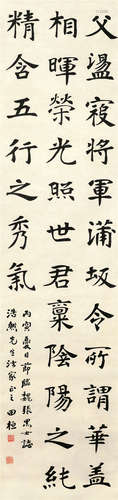 父盪寇將軍蒲坂令所謂華蓋
相暉榮光照世君稟陰陽之純
精含五行之秀氣
丙寅夏日節臨魏張黑女誌
浩興先生法家正之 田桓